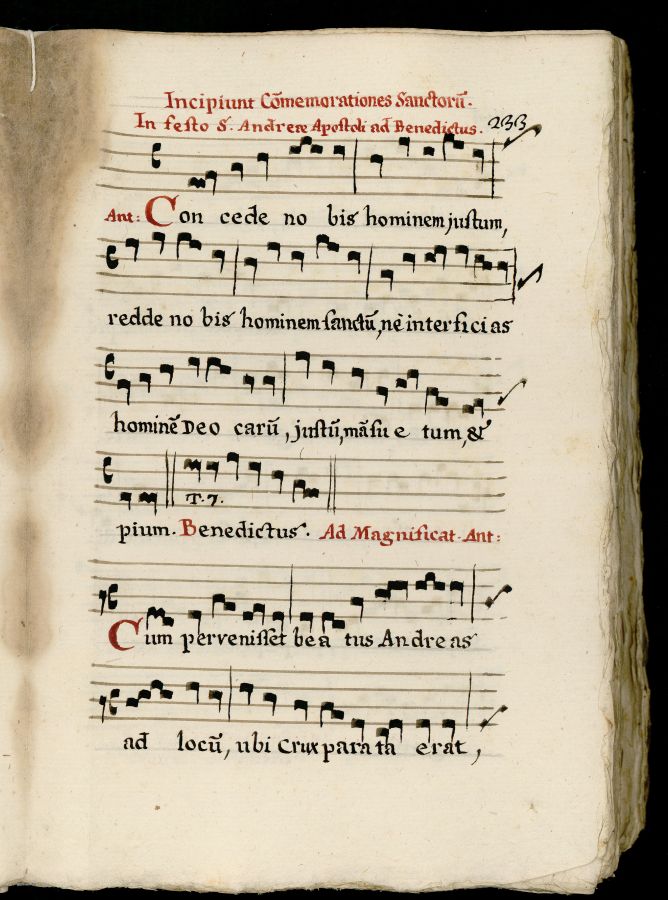 Incipiunt Cõmemorationes Sanctorũ.
In festo S. Andreæ Apostoli ad Benedictus. 233
Ant: Con cede no bis hominem justum,
redde no bis hominem sanctũ, nè interficias
hominẽ Deo carũ, justũ, mãsu e tum, &
T. 7.
pium. Benedictus. Ad Magnificat. Ant:
Cum pervenisset bea tus Andreas
ad locũ, ubi Crux para ta erat,